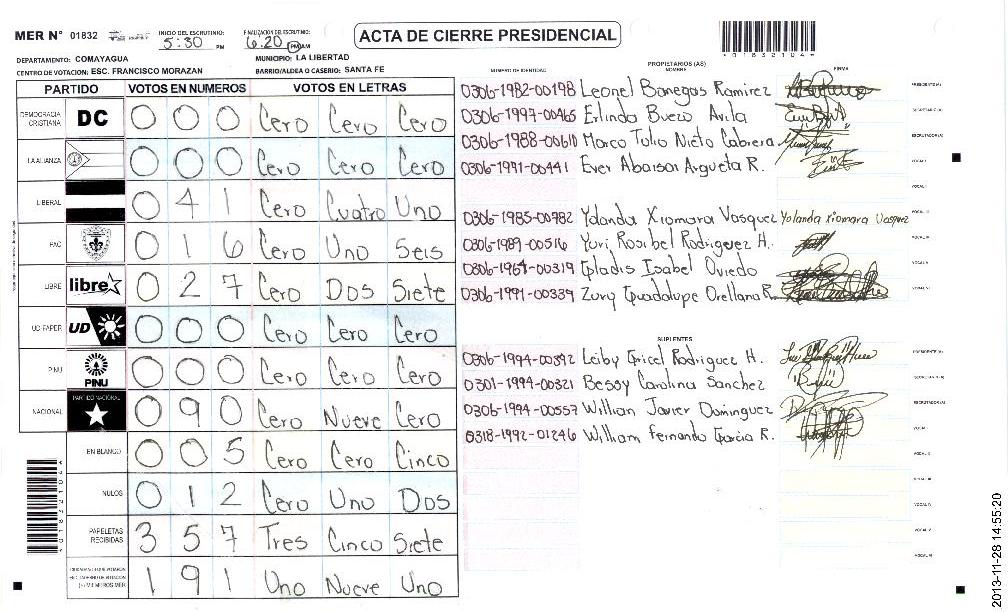 MER N° 01832 INICIO DEL ESCRUTINIO: 5:30 PM FINALIZACION DEL ESCRUTINIO: 6:20 PM AM
ACTA DE CIERRE PRESIDENCIAL
DEPARTAMENTO: COMAYAGUA MUNICIPIO: LA LIBERTAD
CENTRO DE VOTACION: ESC. FRANCISCO MORAZAN BARRIO/ALDEA O CASERIO: SANTA FE
PARTIDO VOTOS EN NUMEROS VOTOS EN LETRAS
DEMOCRACIA CRISTIANA DC 0 0 0 Cero Cero Cero
LA ALIANZA 0 0 0 Cero Cero Cero
LIBERAL 0 4 1 Cero Cuatro Uno
PAC 0 1 6 Cero Uno Seis
LIBRE libre 0 2 7 Cero Dos Siete
UD-FAPER UD 0 0 0 Cero Cero Cero
PINU PINU 0 0 0 Cero Cero Cero
NACIONAL PARTIDO NACIONAL 0 9 0 Cero Nueve Cero
EN BLANCO 0 0 5 Cero Cero Cinco
NULOS 0 1 2 Cero Uno Dos
PAPELETAS RECIBIDAS 3 5 7 Tres Cinco Siete
1 9 1 Uno Nueve Uno
PROPIETARIOS (AS)
NUMERO DE IDENTIDAD NOMBRE FIRMA
0306-1982-00198 Leonel Banegas Ramirez PRESIDENTE(A)
0306-1997-00465 Erlinda Buezo Avila SECRETARIO(A)
0306-1988-00610 Marco Tulio Nieto Cabrera ESCRUTADOR(A)
0306-1991-00441 Ever Abaison Argueta R. VOCAL I
VOCAL II
0306-1985-00782 Yolanda Xiomara Vasquez Yolanda Xiomara Vasquez VOCAL III
0306-1989-00516 Yuri Rosibel Rodriguez H. VOCAL IV
0306-1967-00319 Gladis Isabel Oviedo VOCAL V
0306-1991-00339 Zury Guadalupe Orellana R. VOCAL VI
SUPLENTES
0306-1994-00392 Leiby Gricel Rodriguez H. PRESIDENTE(A)
0301-1994-00321 Bessy Carolina Sanchez SECRETARIO(A)
0306-1994-00557 Willian Javier Dominguez ESCRUTADOR(A)
0318-1992-01246 William Fernando Garcia R. VOCAL I
VOCAL II
VOCAL III
VOCAL IV
VOCAL V
VOCAL VI
2013-11-28 14:55:20